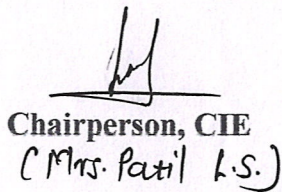 Chairperson, CIE
(Mrs. Patil L.S.)